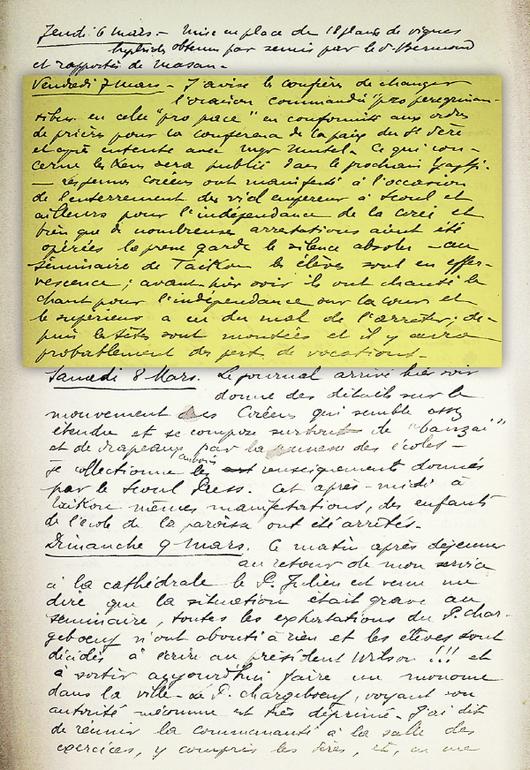 Jeudi 6 Mars - Mise en place de 18 plants de vignes
hybrides obtenus par semis par le P. Bermond
et rapportés de Masan -
Vendredi 7 Mars - J'avise les confrères de changer
l'oraison commandée "pro peregrinan-
tibus" en celle "pro pace" en conformité aux ordres
de prières pour la conférence de la paix du St Père
et après entente avec Mgr Mutel. Ce qui con-
cerne les Koris sera publié dans le prochain
— Les jeunes Coréens ont manifesté à l'occasion
de l'enterrement du vieil empereur à Seoul et
ailleurs pour l'indépendance de la Corée et
bien que de nombreuses arrestations aient été
opérées la presse garde le silence absolu - au
Séminaire de Taikou les élèves sont en effer-
vescence ; avant-hier soir ils ont chanté le
chant pour l'indépendance sur la cour et
le supérieur a eu du mal de l'arrêter ; de-
puis les têtes sont montées et il y aura
probablement des pert. de vocations -
Samedi 8 Mars. Le journal arrivé hier soir
donne des détails sur le
mouvement des Coréens qui semble assez
étendu et se compose surtout de "banzai"
et de drapeaux par la jeunesse des écoles -
je collectionne les renseignements donnés
par le Seoul Press. Cet après-midi à
Taikou mêmes manifestations, des enfants
de l'école de la paroisse ont été arrêtés -
Dimanche 9 Mars. Ce matin après déjeuner
au retour de mon service
à la cathédrale le P. Julien est venu me
dire que la situation était grave au
séminaire, toutes les exhortations du P. Char-
gebœuf n'ont abouti à rien et les élèves sont
décidés à écrire au président Wilson !!! et
à sortir aujourd'hui faire un monome
dans la ville - Le P. Chargebœuf, voyant son
autorité méconnue est très déprimé - J'ai dit
de réunir la communauté à la salle des
exercices, y compris les Pères, et, on me